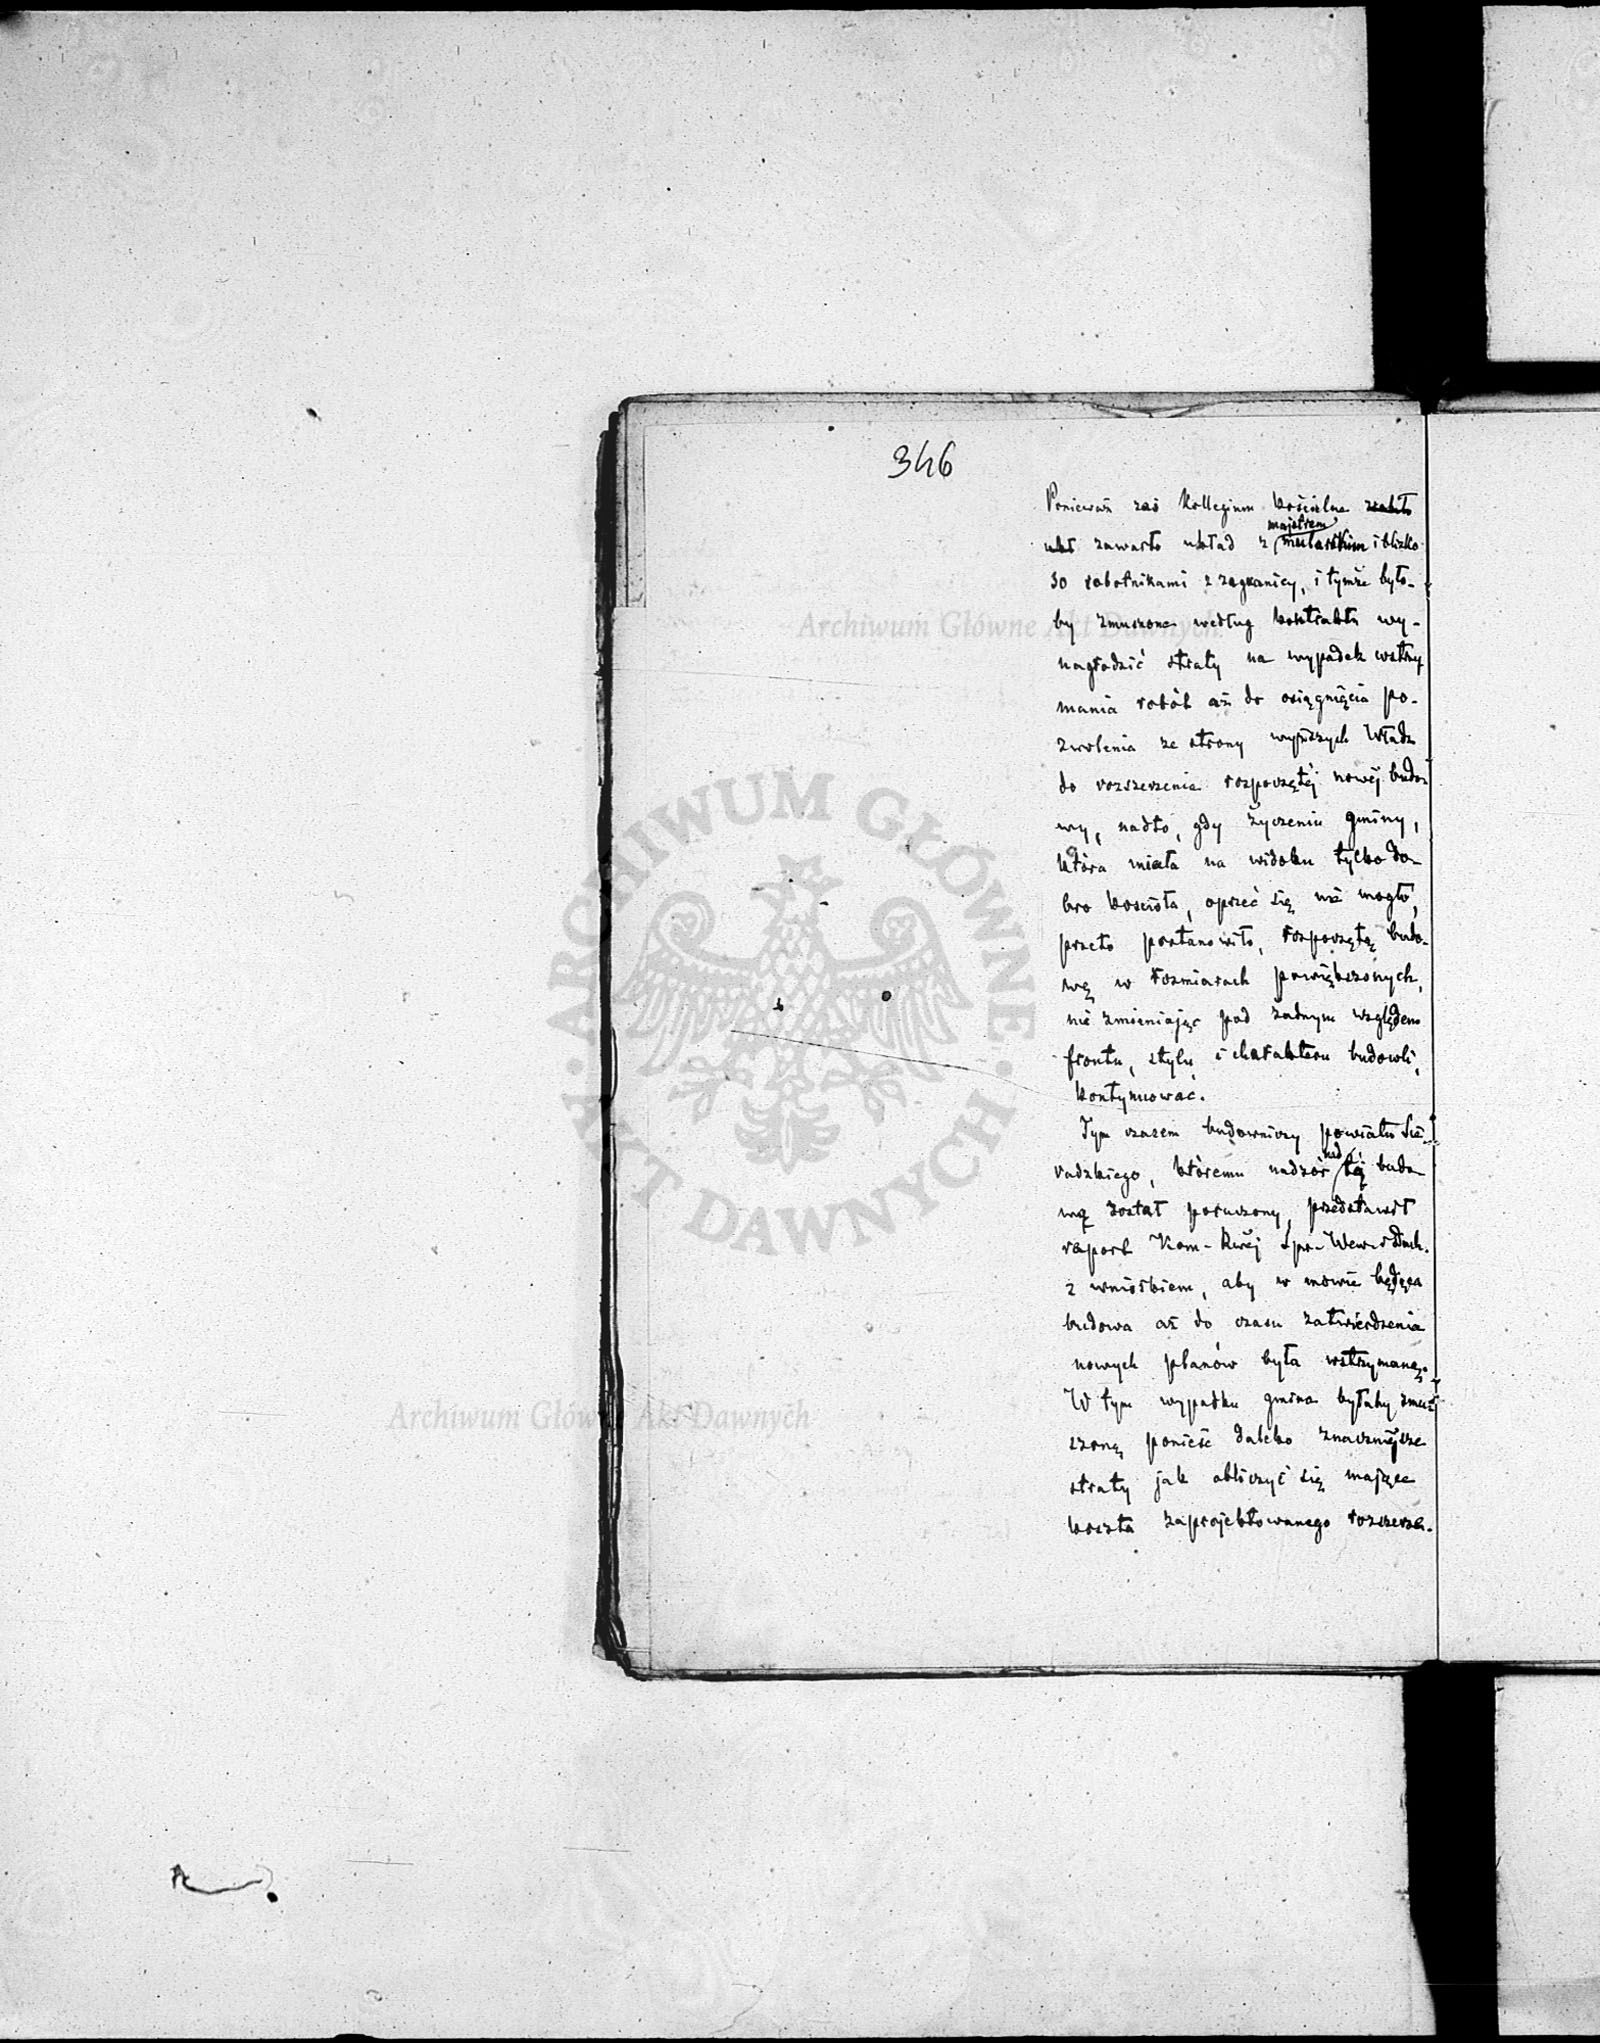 346
Ponieważ zaś Kollegium kościelne
zawarło układ z majstrem mularskim i blizko
30 robotnikami z zagranicy, i tymże było-
by zmuszone według kontraktu wy-
nagrodzić straty na wypadek wstrzy
mania robót aż do osiągnięcia po-
zwolenia ze strony wyższych Władz
do rozszerzenia rozpoczętéj nowéj budo-
wy, nadto, gdy życzeniu gminy,
która miała na widoku tylko do-
bro kościoła, oprzeć się nie mogło,
przeto postanowiło, rozpoczętę budo-
wę w rozmiarach powiększonych,
nie zmieniając pod żadnym względem
frontu, stylu i charakteru budowli,
kontynuować.
Tym czasem budowniczy powiatu Sie-
radzkiego, któremu nadzór nad tę budo
wę został poruczony, przedstawił
raport Kom- Rwéj Spr- Wew- i Duch.
z wnioskiem, aby w mowie będąca
budowa aż do czasu zatwierdzenia
nowych planów była wstrzymaną.
W tym wypadku gmina byłaby zmu-
szoną ponieść daleko znaczniejsze
straty jak obliczyć się mające
koszta zaprojektowanego rozszerze-
Archiwum Główne Akt Dawnych
Archiwum Główne Akt Dawnych
ARCHIWUM GŁÓWNE · AKT DAWNYCH ·